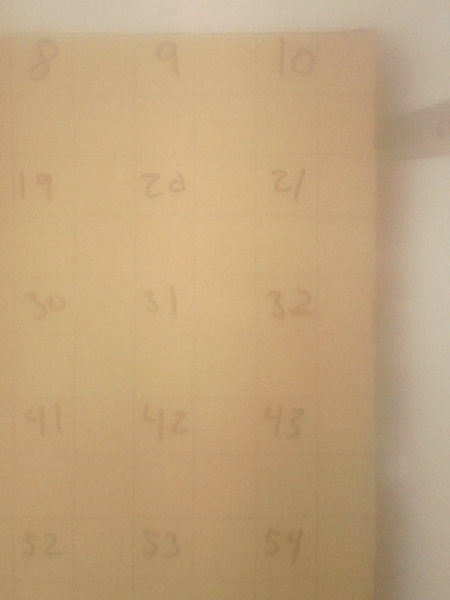 8 9 10
19 20 21
30 31 32
41 42 43
52 53 54